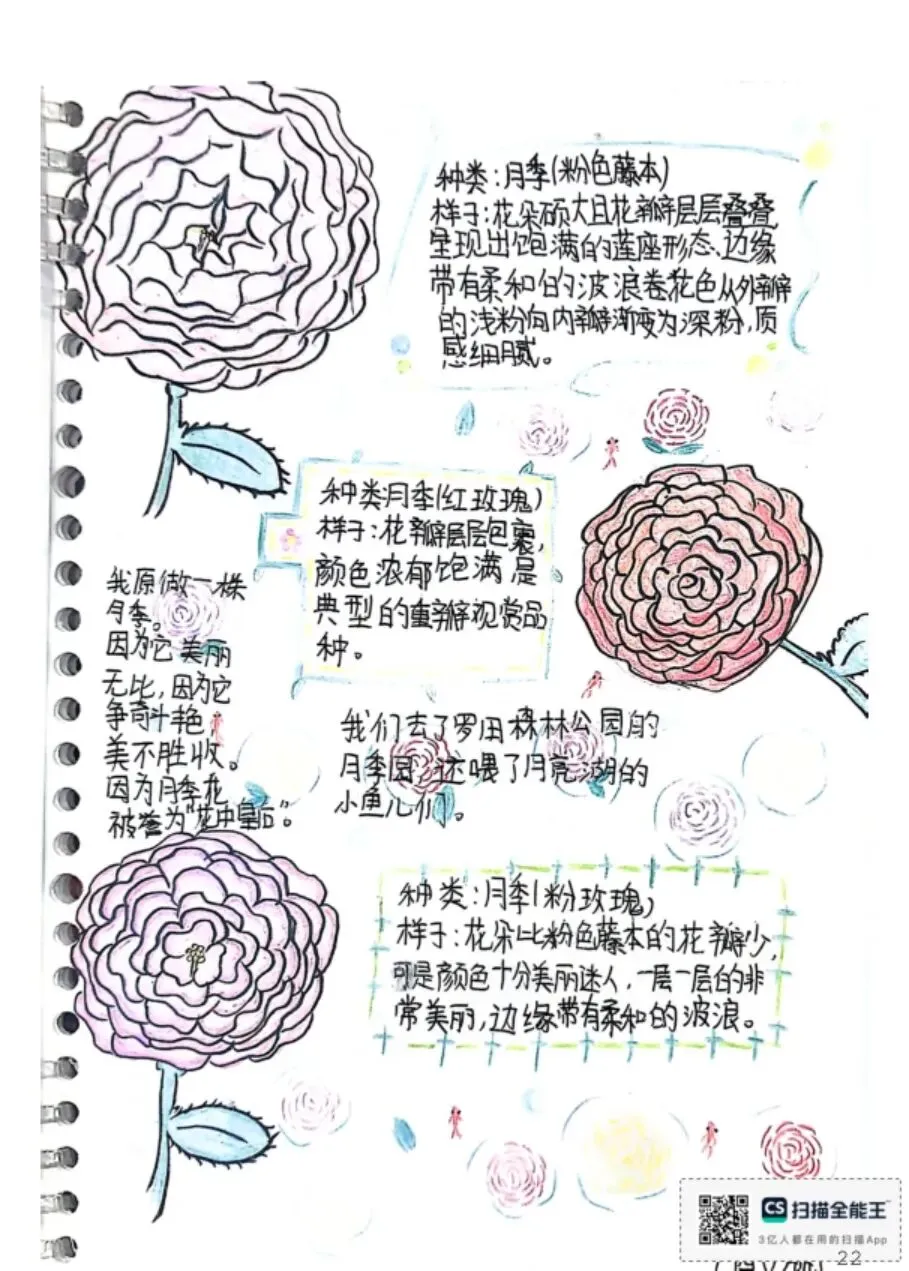 种类：月季(粉色藤本)
样子：花朵硕大且花瓣层层叠叠,
呈现出饱满的莲座形态、边缘
带有柔和的波浪卷花色从外瓣
的浅粉向内瓣渐变为深粉，质
感细腻。
种类月季(红玫瑰)
样子：花瓣层层包裹，
颜色浓郁饱满是
典型的重瓣观赏品
种。
我原做一株
月季。
因为它美丽
无比，因为它
争奇斗艳，
美不胜收。
因为月季花
被誉为“花中皇后”。
我们去了罗田森林公园的
月季园，还喂了月亮湖的
小鱼儿们。
种类：月季(粉玫瑰)
样子：花朵比粉色藤本的花瓣少，
可是颜色十分美丽迷人，一层一层的非
常美丽，边缘带有柔和的波浪。
CS 扫描全能王
3亿人都在用的扫描App
22